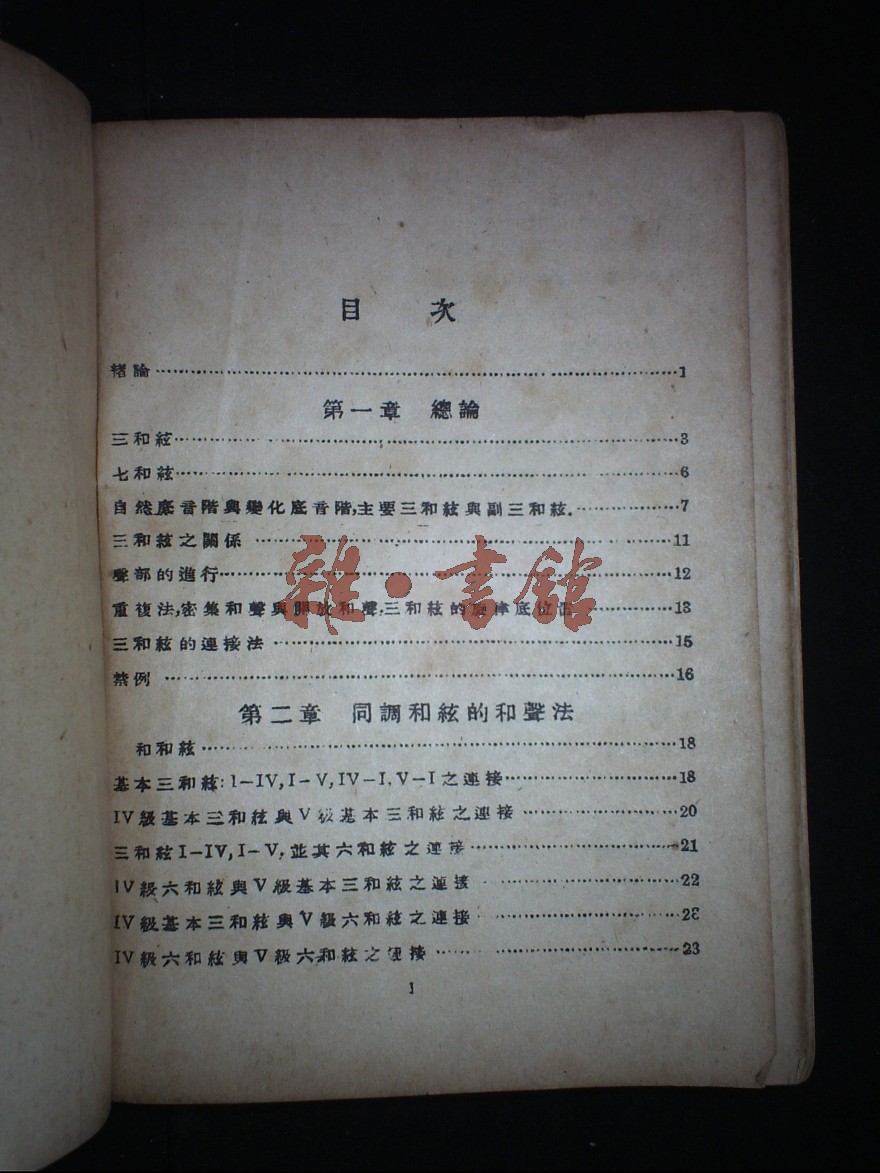 目　次
緒論 1
第一章　總論
三和絃 3
七和絃 6
自然底音階與變化底音階,主要三和絃與副三和絃. 7
三和絃之關係 11
聲部的進行 12
重復法,密集和聲與開放和聲,三和絃的旋律底位置 13
三和絃的連接法 15
禁例 16
第二章　同調和絃的和聲法
和和絃 18
基本三和絃: I—IV, I—V, IV—I, V—I 之連接 18
IV級基本三和絃與V級基本三和絃之連接 20
三和絃 I—IV, I—V, 並其六和絃之連接 21
IV級六和絃與V級基本三和絃之連接 22
IV級基本三和絃與V級六和絃之連接
IV級六和絃與V級六和絃之連接 23
1
雜·書館